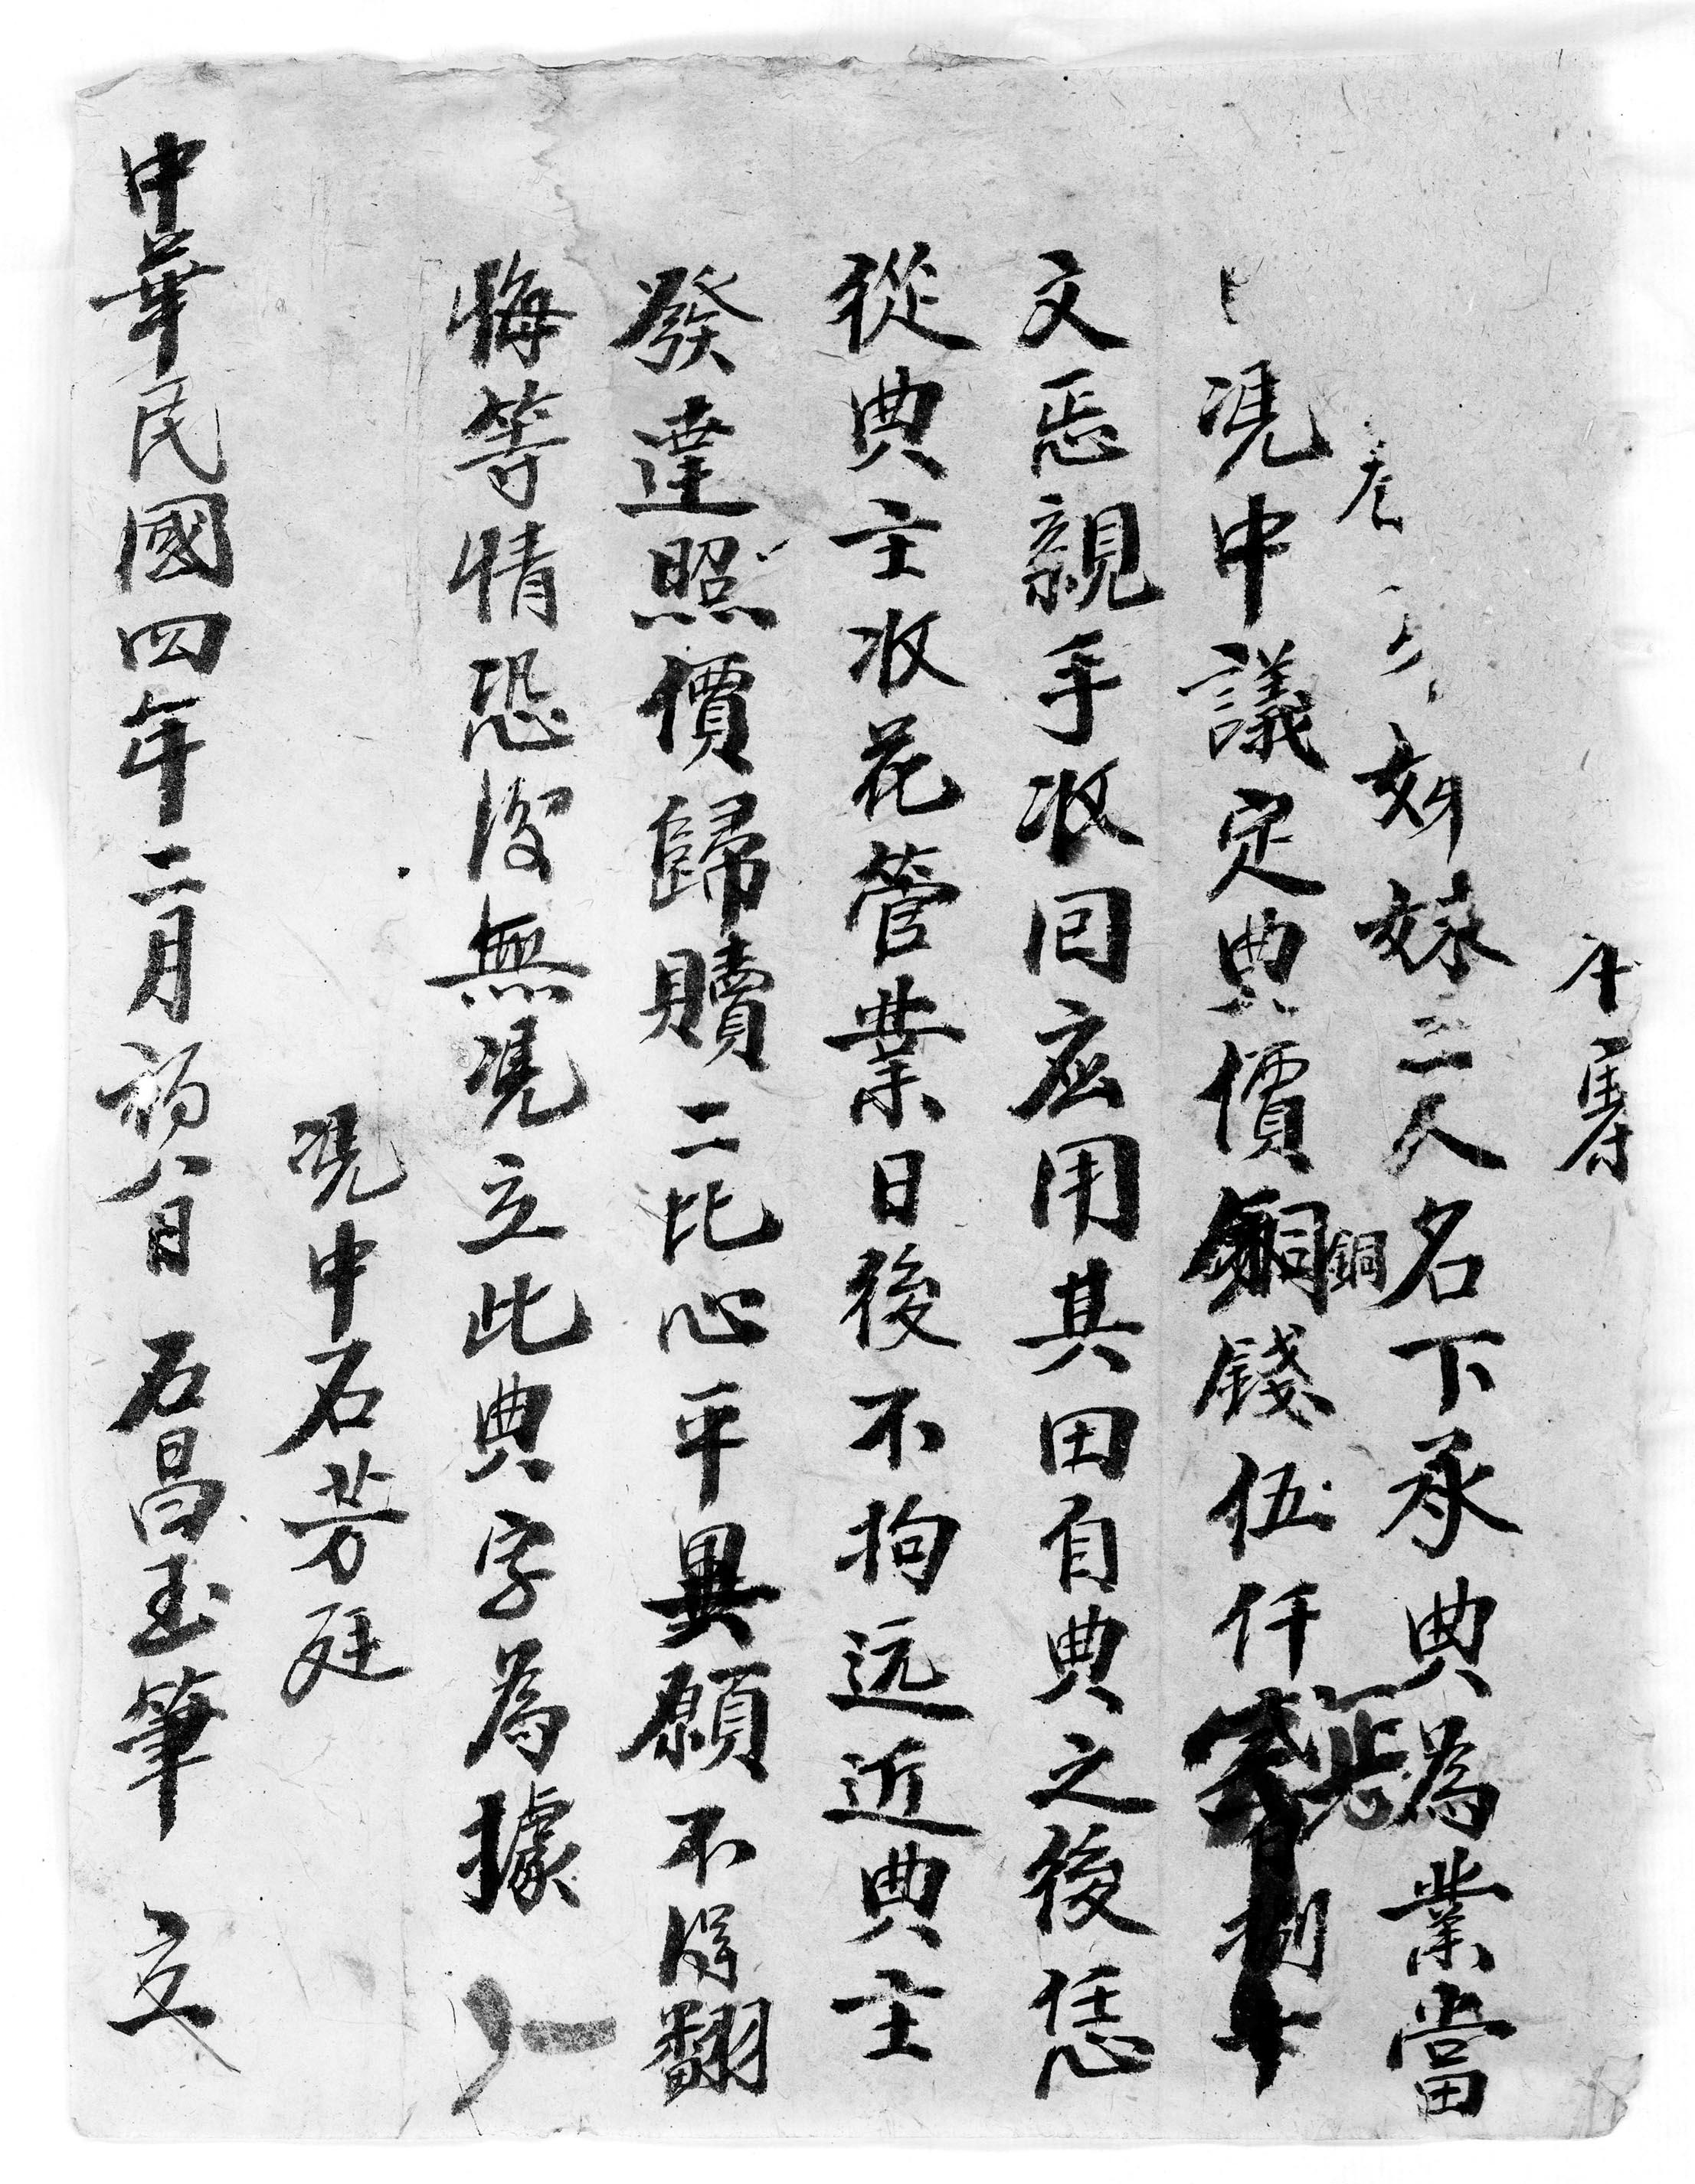 姊妹二人名下承典為業當
日凴中議定典價銅錢伍仟
銅
文惡親手收回应用其田自典之後恁
從典主收花管業日後不拘远近典主
發達照價歸贖二比心平異願不得翻
悔等情恐後無凴立此典字為據
凴中石芳廷
中華民國四年二月初八日石昌玉筆立